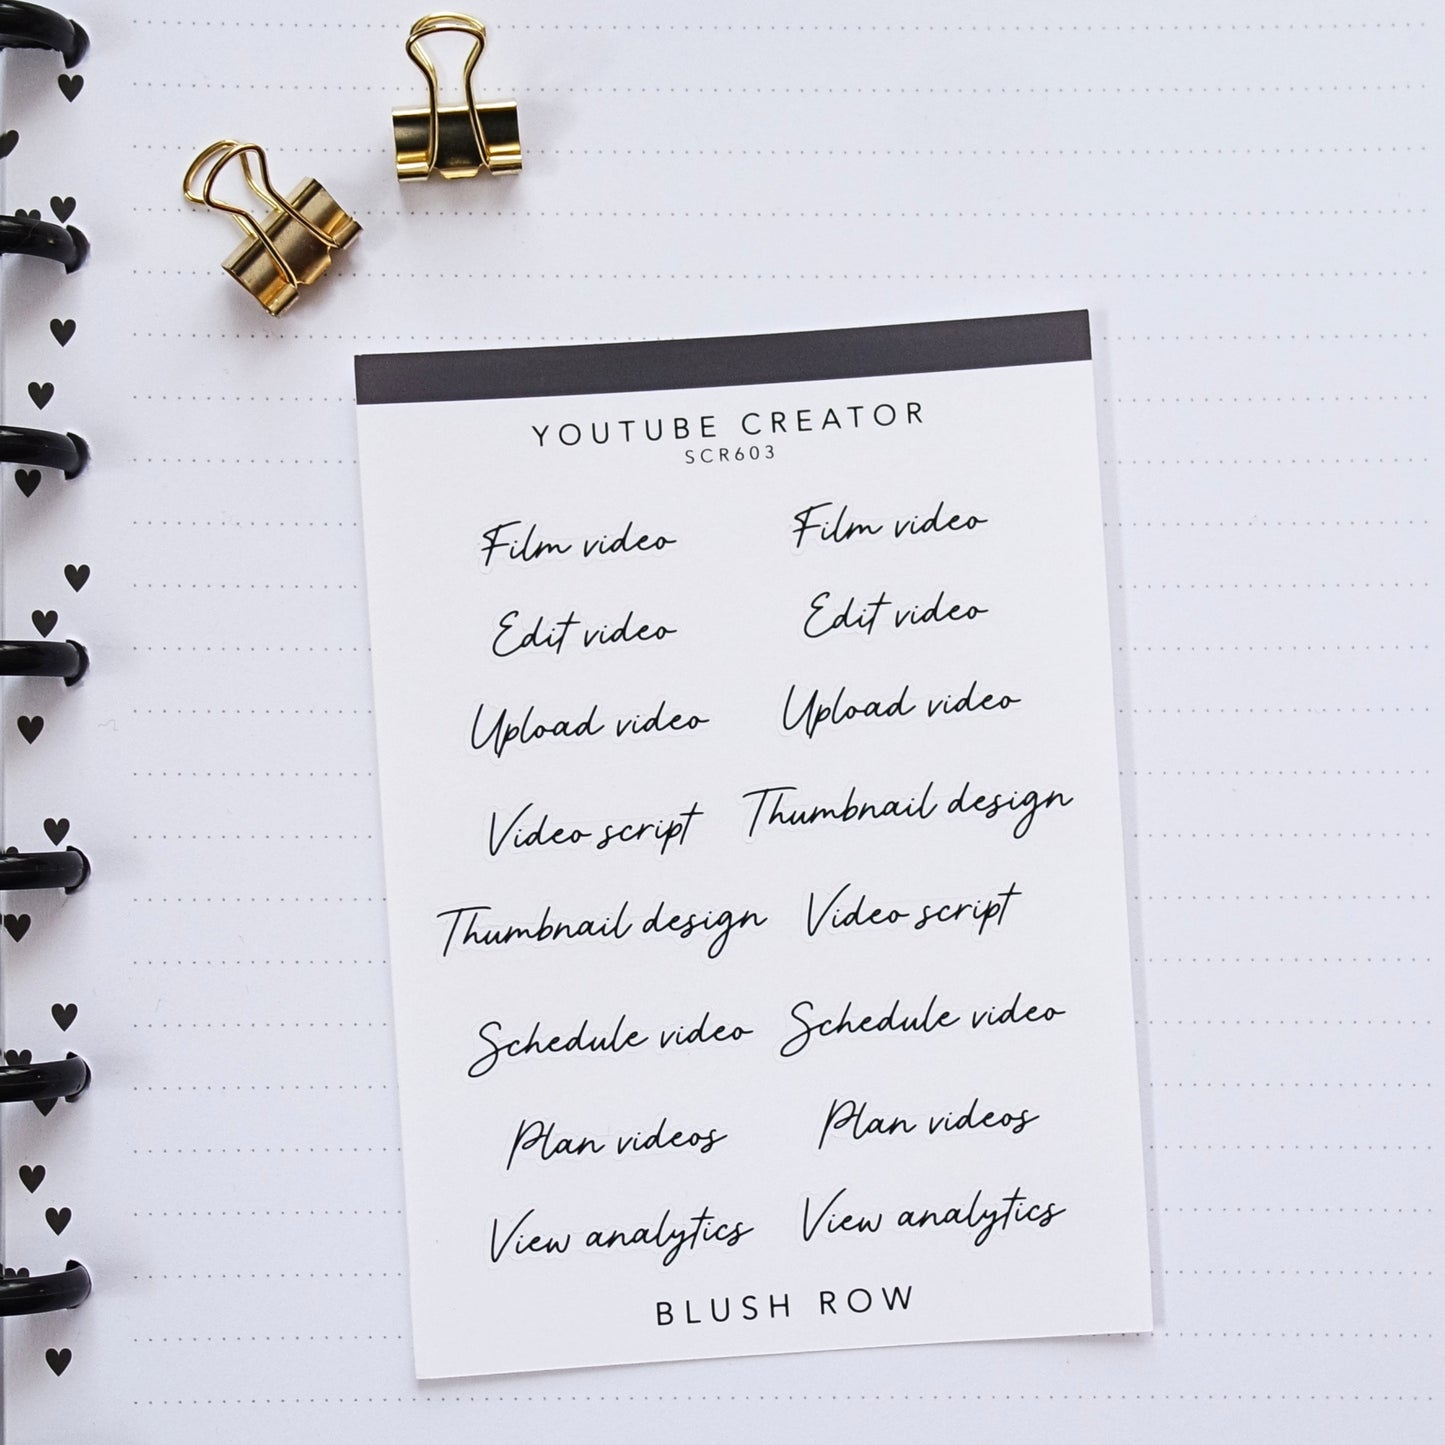 YOUTUBE CREATOR
SCR603
Film video Film video
Edit video Edit video
Upload video Upload video
Video script Thumbnail design
Thumbnail design Video script
Schedule video Schedule video
Plan videos Plan videos
View analytics View analytics
BLUSH ROW